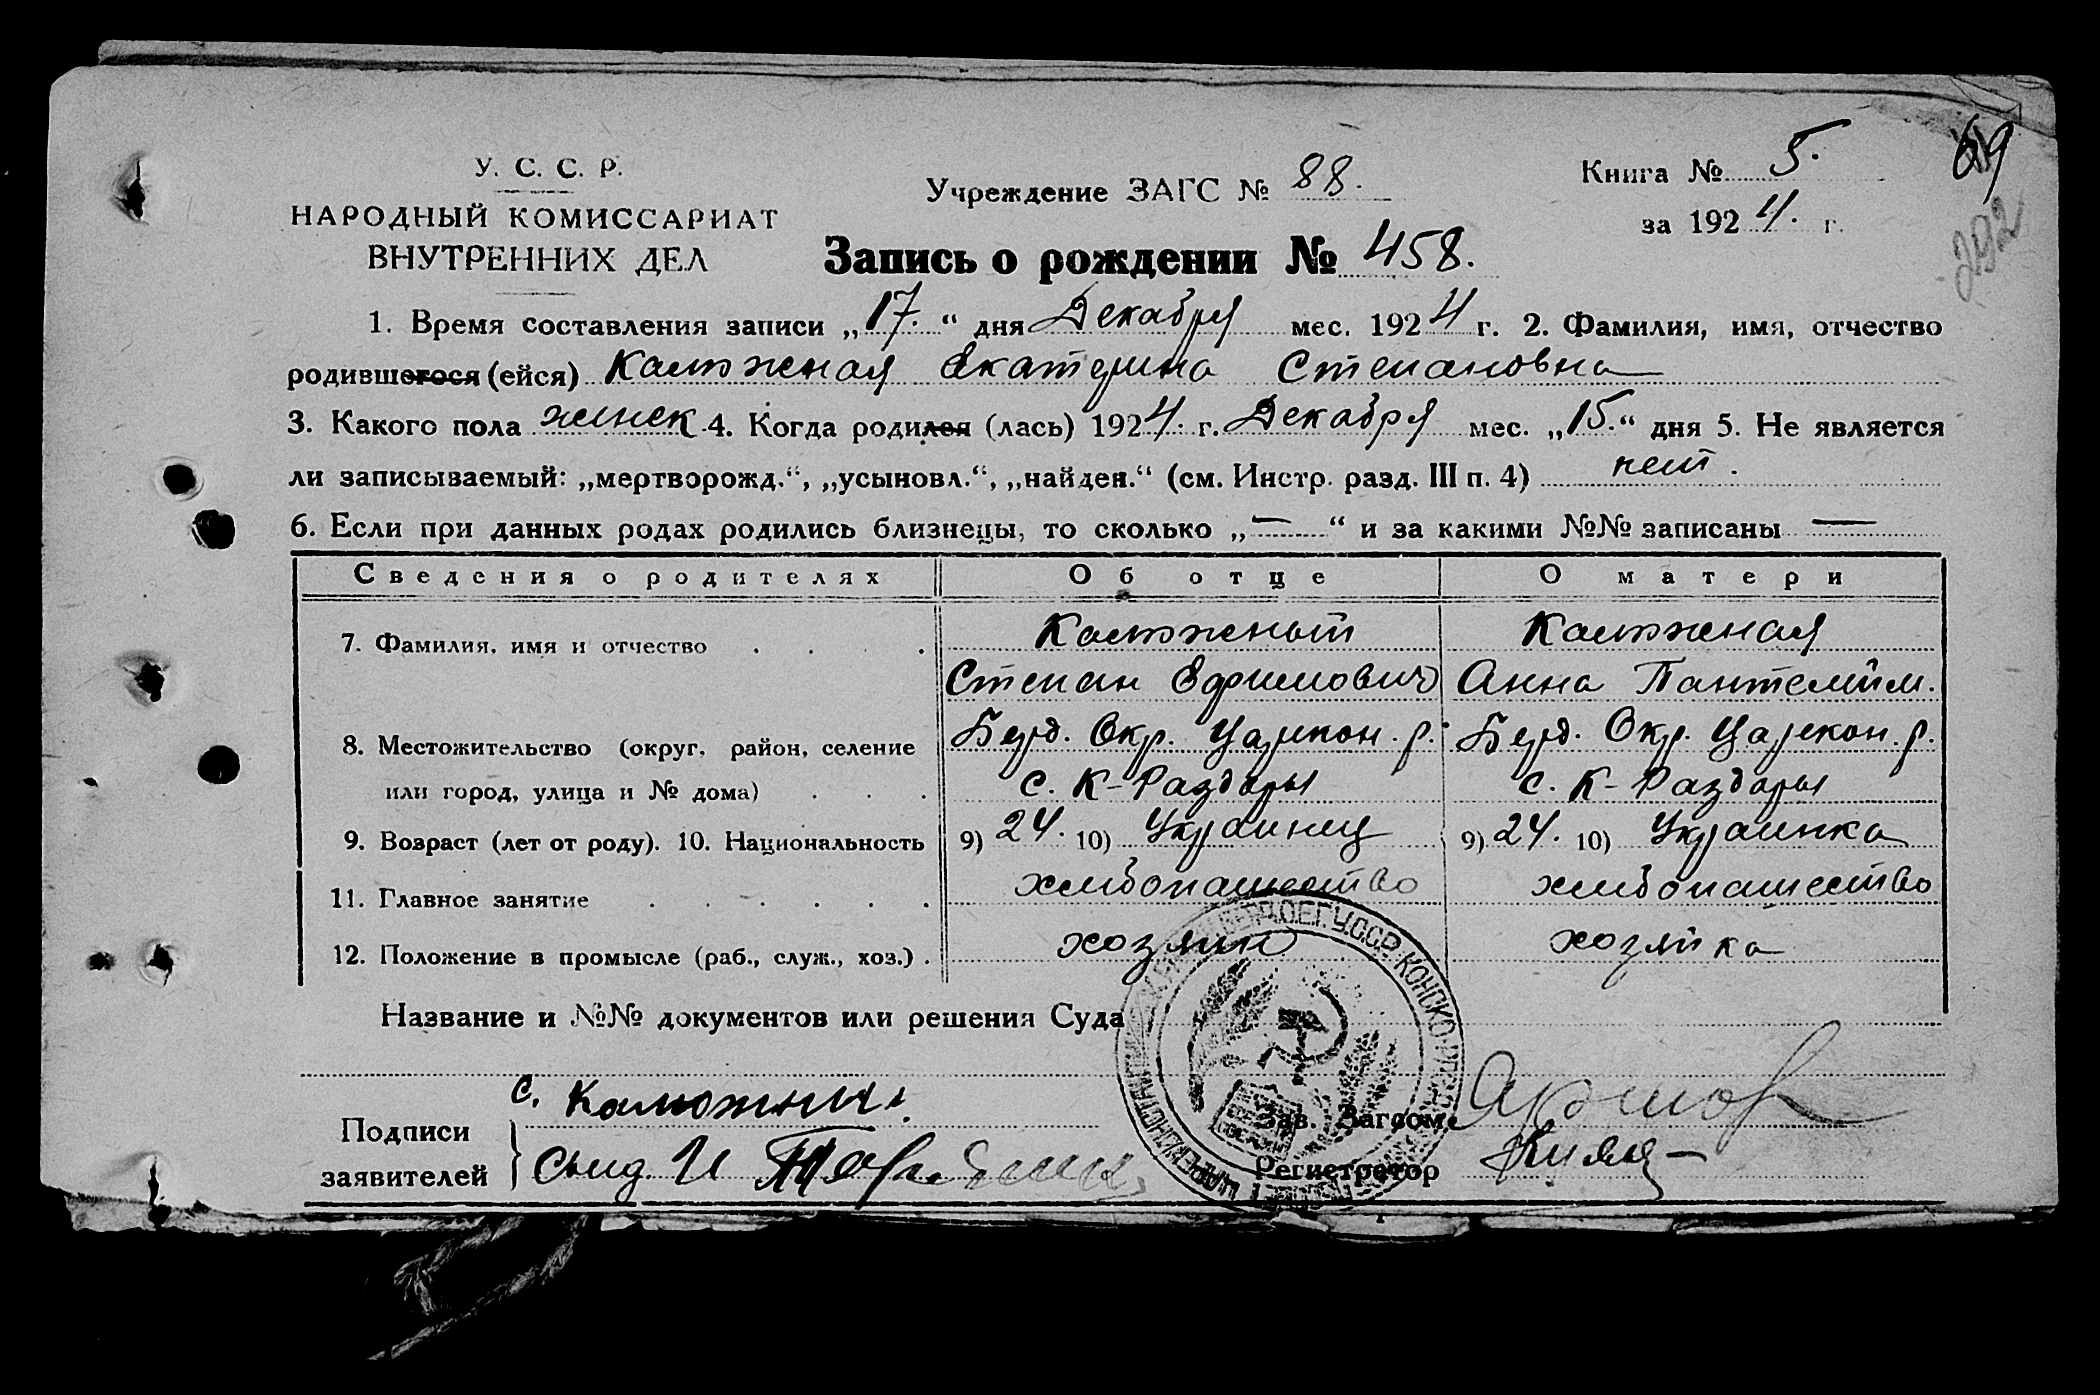 69
292
У. С. С. Р.
НАРОДНЫЙ КОМИССАРИАТ
ВНУТРЕННИХ ДЕЛ
Учреждение ЗАГС № 88.
Книга № 5.
за 1924. г.
Запись о рождении № 458.
1. Время составления записи „17.“ дня Декабря мес. 1924 г. 2. Фамилия, имя, отчество
родившегося (ейся) Калюжная Екатерина Степановна
3. Какого пола женск 4. Когда родился (лась) 1924. г. Декабря мес. „15.“ дня 5. Не является
ли записываемый: „мертворожд.“, „усыновл.“, „найден.“ (см. Инстр. разд. III п. 4) нет.
6. Если при данных родах родились близнецы, то сколько „—“ и за какими №№ записаны —
Сведения о родителях Об отце О матери
7. Фамилия, имя и отчество Калюжный Калюжная
Степан Ефимович Анна Пантелийм.
8. Местожительство (округ, район, селение Берд. Окр. Царекон. р. Берд. Окр. Царекон. р.
или город, улица и № дома) с. К-Раздоры с. К-Раздоры
9. Возраст (лет от роду). 10. Национальность 9) 24. 10) Украинец 9) 24. 10) Украинка
11. Главное занятие хлебопашество хлебопашество
12. Положение в промысле (раб., служ., хоз.) хозяин хозяйка
Название и №№ документов или решения Суда
Подписи заявителей
С. Калюжный
Свид. И
Зав. Загсом
Регистратор